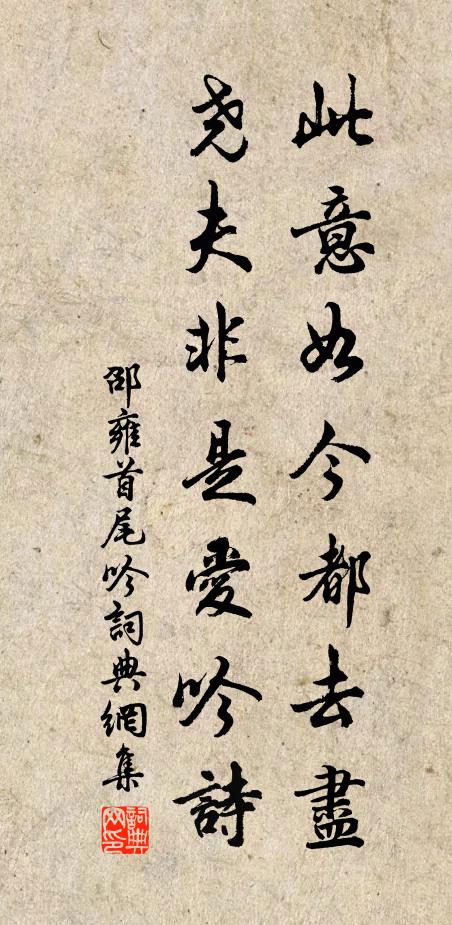 此意如今都去盡
尧夫非是愛吟詩
邵雍首尾吟詞典網集
詞典网印